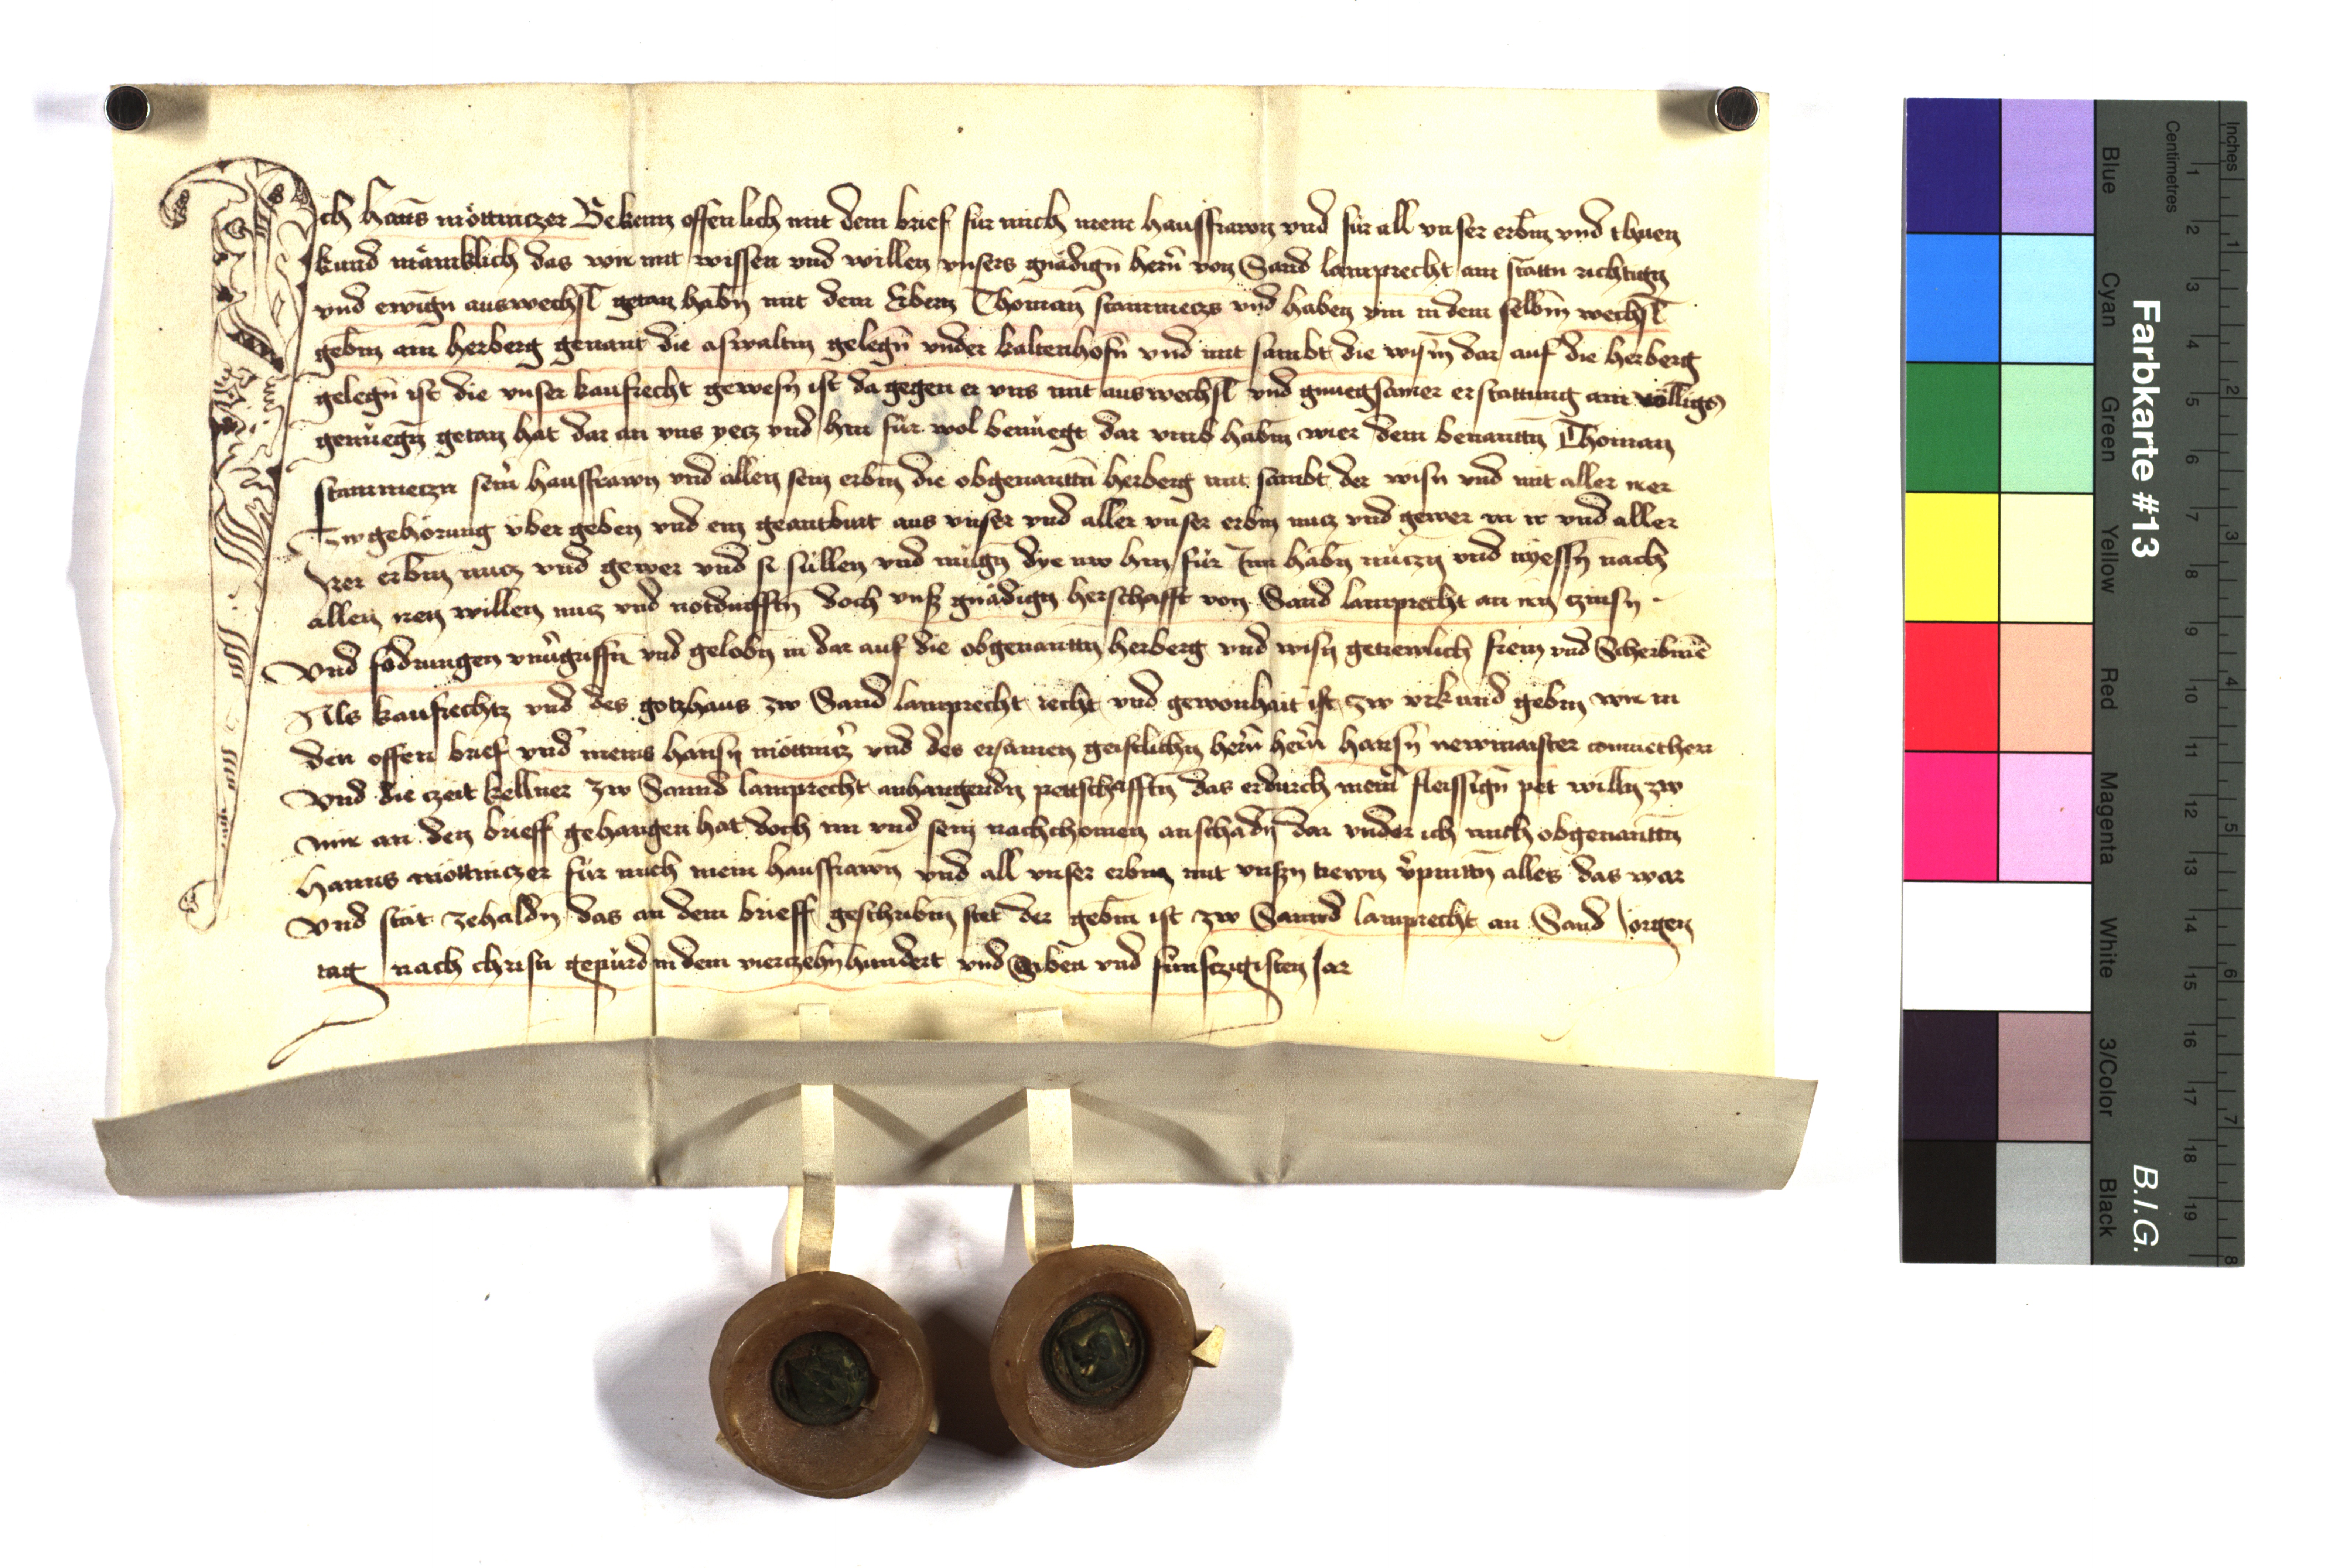 Ich Hanns möttniczer Bekenn offenlich mit dem brief für mich mein hausfrawn vnd für all vnser erbm vnd thuen
kund mänklich das wir mit wissen vnd willen vnsers gnädign hern von Sand lamprecht ain stättn richtign
vnd ewign auswechsl getan habn mit dem Erbern Thoman stainmecz vnd haben ym in dem selbm wechsl
gebm ain herberg genant die aswaltin gelegn vnder kaltenhofn vnd mit sambt die wism dar auf die herberg
gelegn ist die vnser kaufrecht gewesn ist da gegen er vns mit auswechsl vnd gnuegsamer erstattung ain völligs
genüegn getan hat dar an vns yecz vnd hin für wol benüegt dar vmb habm wier dem benantn Thoman
stainmeczn seiner hausfrawn vnd allen sein erbm die obgenanttn herberg mit sambt der wisn vnd mit aller irer
Zwgehörung über geben vnd ein geantburt aus vnser vnd aller vnser erbm nucz vnd gewer in ir vnd aller
Irer erbm nucz vnd gewer vnd si süllen vnd mügn dye nw hin für Inn habn nüczn vnd nyessn nach
allen iren willen nucz vnd notdurfftn doch vnser gnädign herschafft von Sand lamprecht an irn czinsn
Vnd fodrungen vnuergriffn vnd gelobn in dar auf die obgenanttn herberg vnd wisn getrewlich freyn vnd Scherbmen
Als kaufrechtz vnd des gotzhaus zw Sand lamprecht recht vnd gewonhait ist zw vrkund gebm wir in
den offen brief vnd meins hansn möttniczer vnd des ersamen geistlichn hern hern hansn newmaister conuethern
Vnd die czeit kellner zw Sannd lamprecht anhangendn pettschafftn das er durch meiner fleissign pet willn zw
mir an den brieff gehangen hat doch im vnd sein nachchomen anschadn dar vnder ich mich obgenanttn
Hanns möttniczer für mich mein hausfrawn vnd all vnser erbm mit vnsern trewn verpinttn alles das war
Vnd stät zehaldn das an dem brieff geschribm stet der gebm ist zw Sannd lamprecht an Sand Jorgen
tag nach christi gepürd in dem vierczehnhundert vnd Siben vnd fünfczigisten Jar
Farbkarte #13
B.I.G.
Blue
Cyan
Green
Yellow
Red
Magenta
White
3/Color
Black
Centimetres
1 2 3 4 5 6 7 8 9 10 11 12 13 14 15 16 17 18 19
Inches
1 2 3 4 5 6 7 8